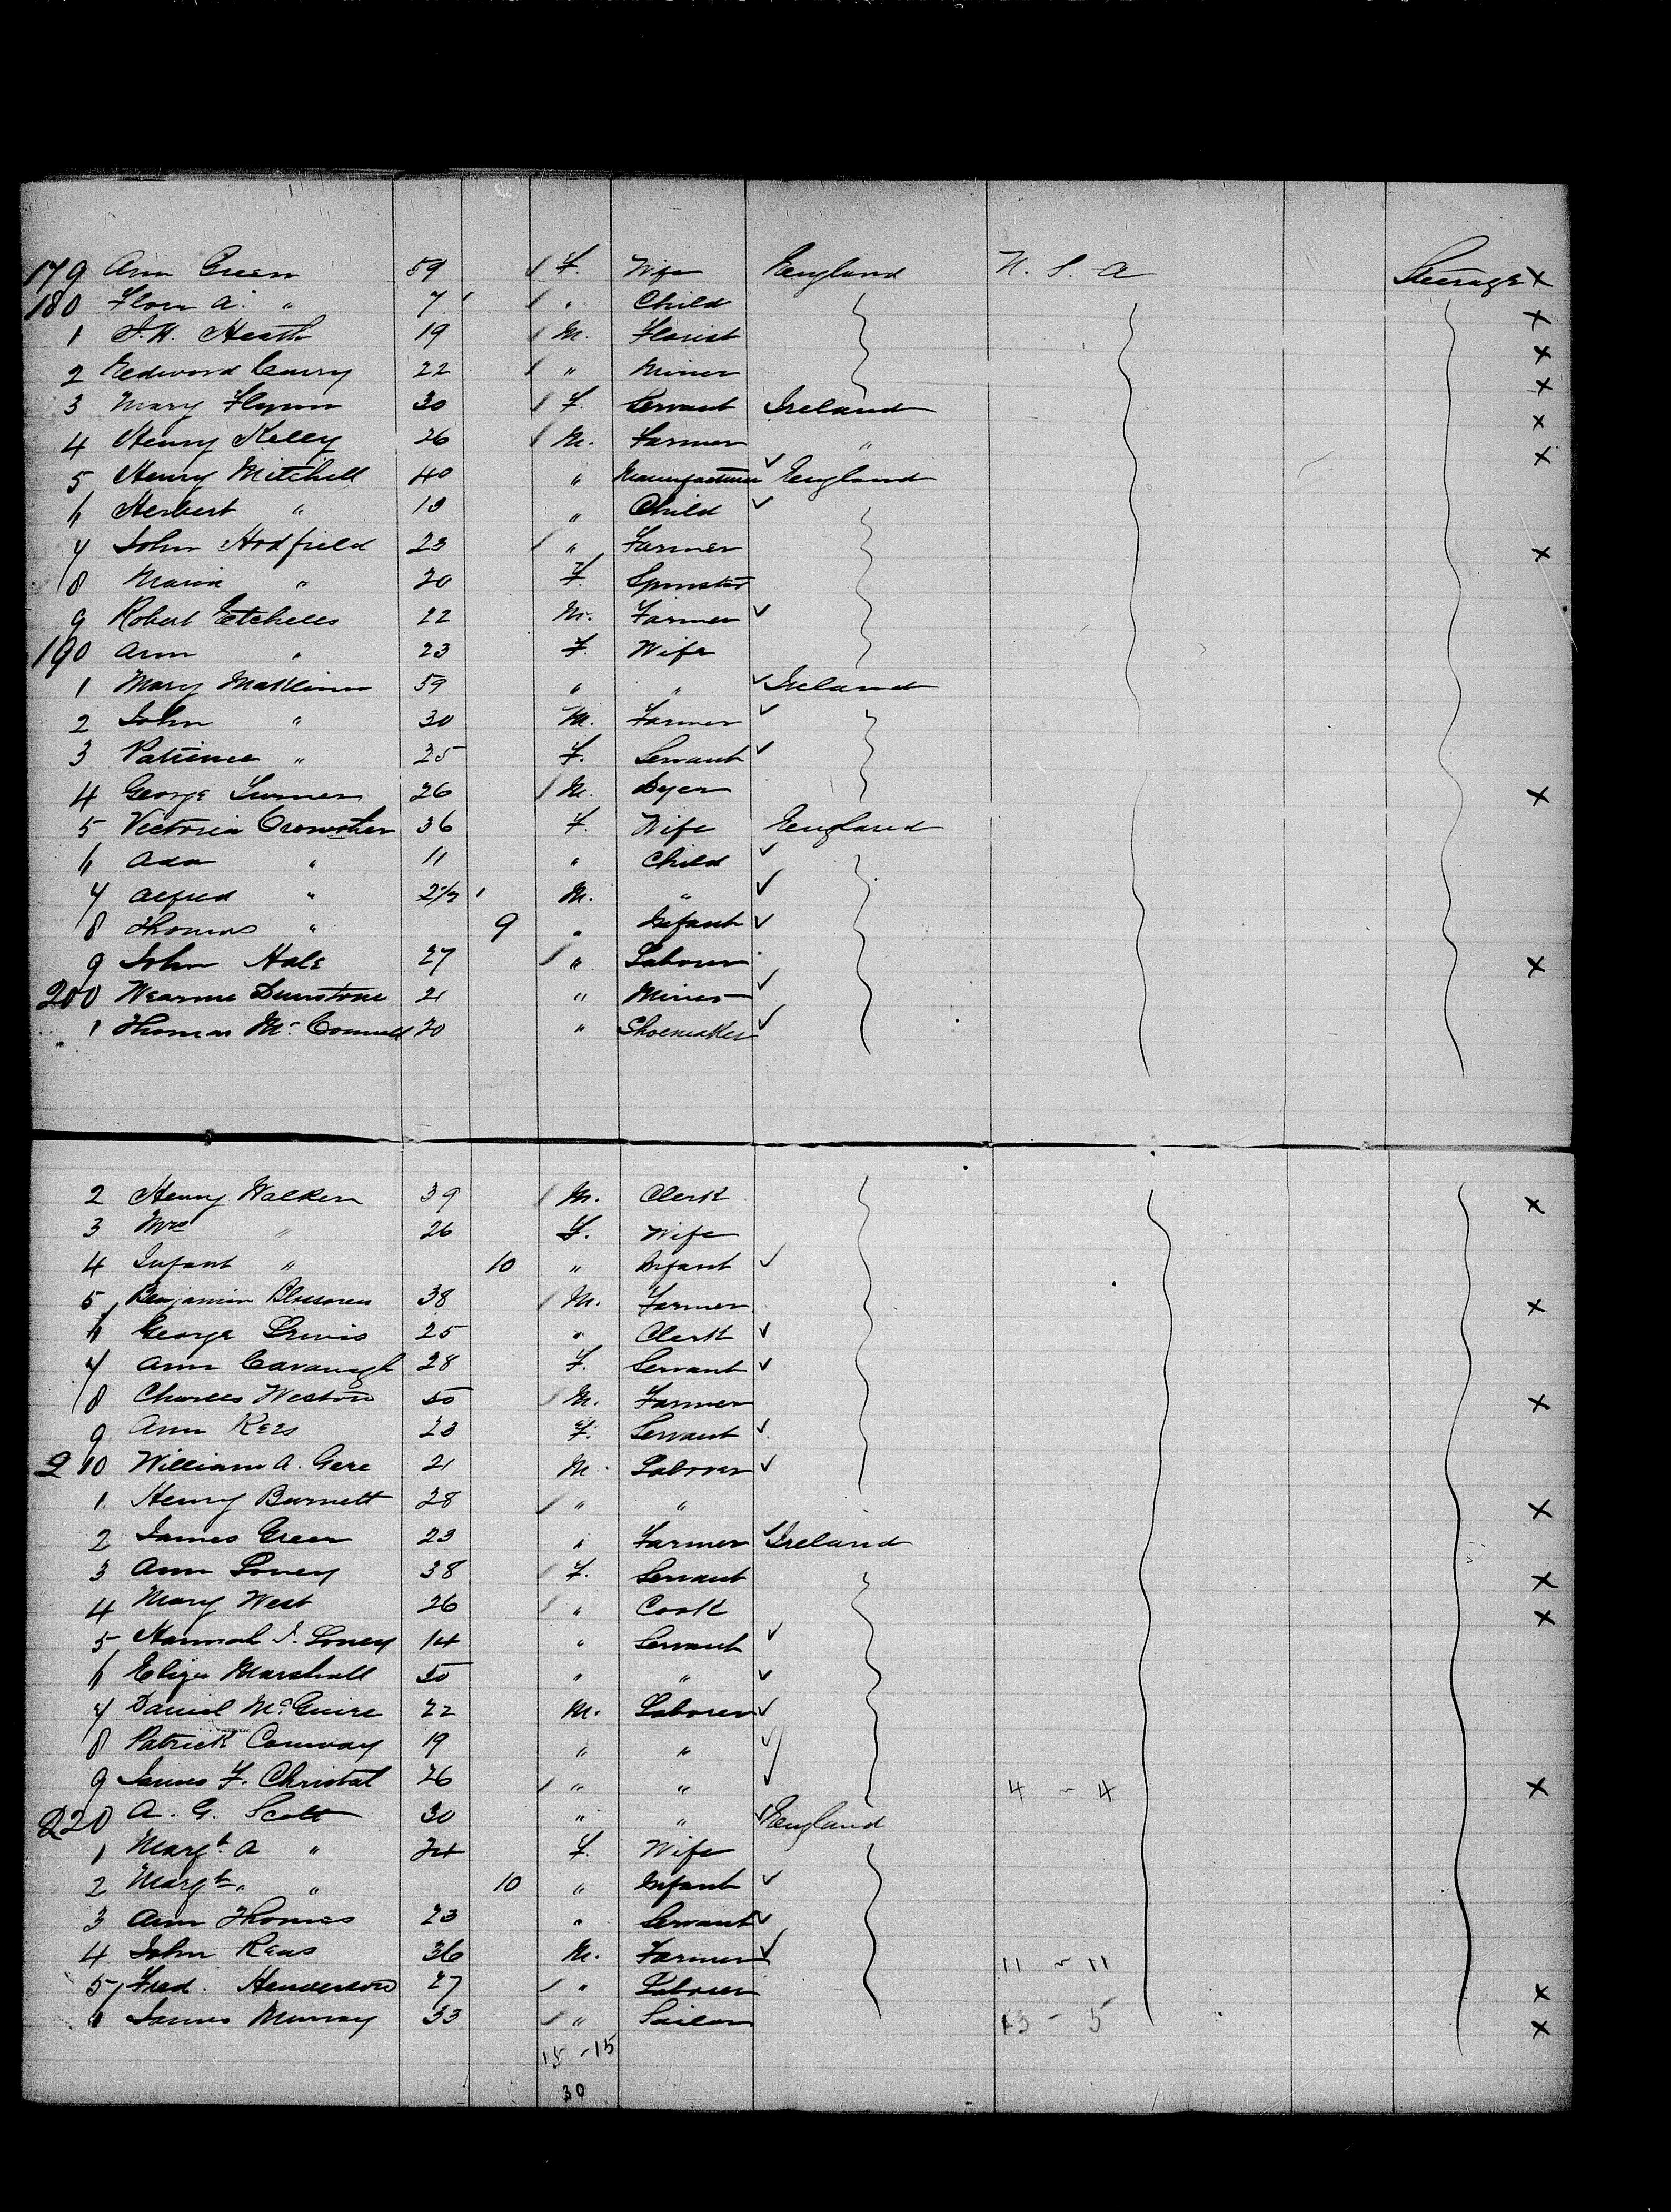 179 Ann Green 59 F. Wife England U. S. A Steerage X
180 Flora A. " 7 " Child X
1 J. H. Heath 19 M. Florist X
2 Edward Curry 22 " Miner X
3 Mary Flynn 30 F. Servant Ireland X
4 Henry Kelly 26 M. Farmer " X
5 Henry Mitchell 40 " Manufacturer England
6 Herbert " 13 " Child
7 John Hodfield 23 " Farmer X
8 Maria " 20 F. Spinster
9 Robert Etchells 22 M. Farmer
190 Ann " 23 F. Wife
1 Mary 59 " " Ireland
2 John " 30 M. Farmer
3 Patience " 25 F. Servant
4 George Turner 26 M. Dyer X
5 Victoria Crowther 36 F. Wife England
6 Ada " 11 " Child
7 Alfred " 2 1/2 M. "
8 Thomas " 9 " Infant
9 John Hale 27 " Laborer X
200 Dunstone 21 " Miner
1 Thomas McConnell 20 " Shoemaker
2 Henry Walker 39 M. Clerk X
3 Mrs " 26 F. Wife
4 Infant " 10 " Infant
5 Benjamin 38 M. Farmer X
6 George Lewis 25 " Clerk
7 Ann Cavanagh 28 F. Servant
8 Charles Weston 50 M. Farmer X
9 Ann Rees 23 F. Servant
210 William A. Gere 21 M. Laborer
1 Henry Burnett 28 " " X
2 James Green 23 " Farmer Ireland
3 Ann Loney 38 F. Servant X
4 Mary West 26 " Cook X
5 Hannah J. Loney 14 " Servant
6 Eliza Marshall 50 " "
7 Daniel McGuire 22 M. Laborer
8 Patrick Conway 19 " "
9 James F. Christal 26 " " 4 - 4 X
220 A. G. Scott 30 " " England
1 Margt. A " 24 F. Wife
2 Margt. " 10 " Infant
3 Ann Thomas 23 " Servant
4 John Rees 36 M. Farmer 11 - 11
5 Fred. Henderson 27 " Laborer X
6 James Murray 33 " Sailor 13 - 5 X
15 - 15
30